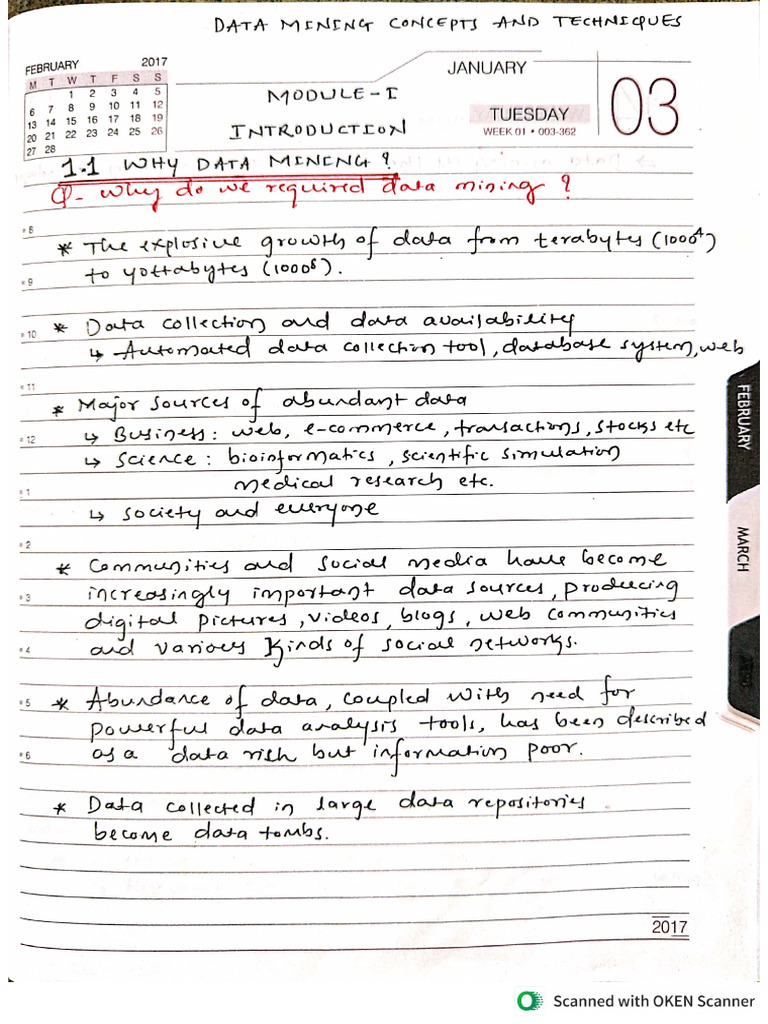 DATA MINING CONCEPTS AND TECHNIQUES
FEBRUARY 2017
M T W T F S S
1 2 3 4 5
6 7 8 9 10 11 12
13 14 15 16 17 18 19
20 21 22 23 24 25 26
27 28
MODULE-I
INTRODUCTION
JANUARY
TUESDAY
WEEK 01 • 003-362
03
1.1 WHY DATA MINING?
Q- Why do we required data mining ?
8
* The explosive growth of data from terabytes (1000⁴)
9
to yottabytes (1000⁸).
10
* Data collection and data availability
↳ Automated data collection tool, database system, web
11
* Major sources of abundant data
12
↳ Business: web, e-commerce, transactions, stocks etc
↳ Science: bioinformatics, scientific simulation
1
medical research etc.
↳ society and everyone
2
* Communities and social media have become
3
increasingly important data sources, producing
digital pictures, videos, blogs, web communities
4
and various kinds of social networks.
5
* Abundance of data, coupled with need for
powerful data analysis tools, has been described
6
as a data rish but information poor.
* Data collected in large data repositories
become data tombs.
FEBRUARY
MARCH
2017
Scanned with OKEN Scanner